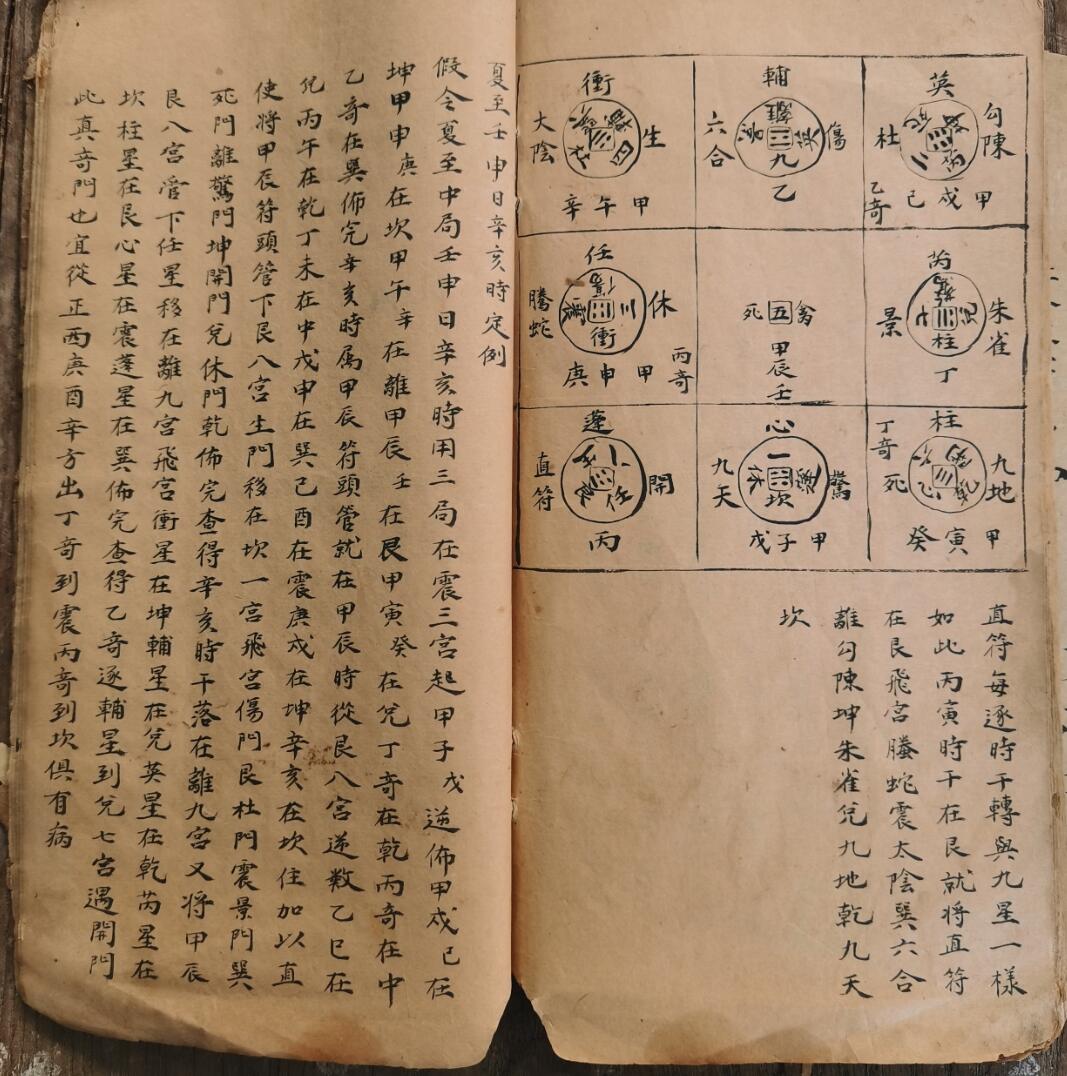 英
勾陳
杜
甲戌己
乙奇
輔
離
九
傷
六合
乙
衝
四
生
大陰
甲午辛
芮
七
柱
朱雀
景
丁
禽
五
死
甲辰壬
任
三
衝
休
騰蛇
甲申庚
丙奇
柱
九地
死
丁奇
甲寅癸
心
一
坎
休
驚
九天
甲子戊
蓬
開
直符
丙
直符每逐時干轉與九星一樣
如此丙寅時干在艮就將直符
在艮飛宮螣蛇震太陰巽六合
離勾陳坤朱雀兌九地乾九天
坎
夏至壬申日辛亥時定例
假令夏至中局壬申日辛亥時用三局在震三宮起甲子戊逆佈甲戌己在
坤甲申庚在坎甲午辛在離甲辰壬在艮甲寅癸在兌丁奇在乾丙奇在中
乙奇在巽佈完辛亥時属甲辰符頭管就在甲辰時從艮八宮逆数乙巳在
兌丙午在乾丁未在中戊申在巽己酉在震庚戌在坤辛亥在坎住加以直
使將甲辰符頭管下艮八宮生門移在坎一宮飛宮傷門艮杜門震景門巽
死門離驚門坤開門兌休門乾佈完查得辛亥時干落在離九宮又將甲辰
艮八宮管下任星移在離九宮飛宮衝星在坤輔星在兌英星在乾芮星在
坎柱星在艮心星在震蓬星在巽佈完查得乙奇逐輔星到兌七宮遇開門
此真奇門也宜從正西庚酉辛方出丁奇到震丙奇到坎俱有病